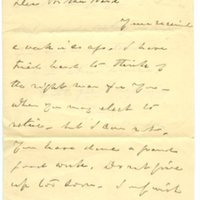 Dear
Yours received
a week or so ago. I have
tried hard to think of
the right man for you –
when you may elect to
retire. but I do not.
You have done a grand
good work. Don't give
up too soon. I